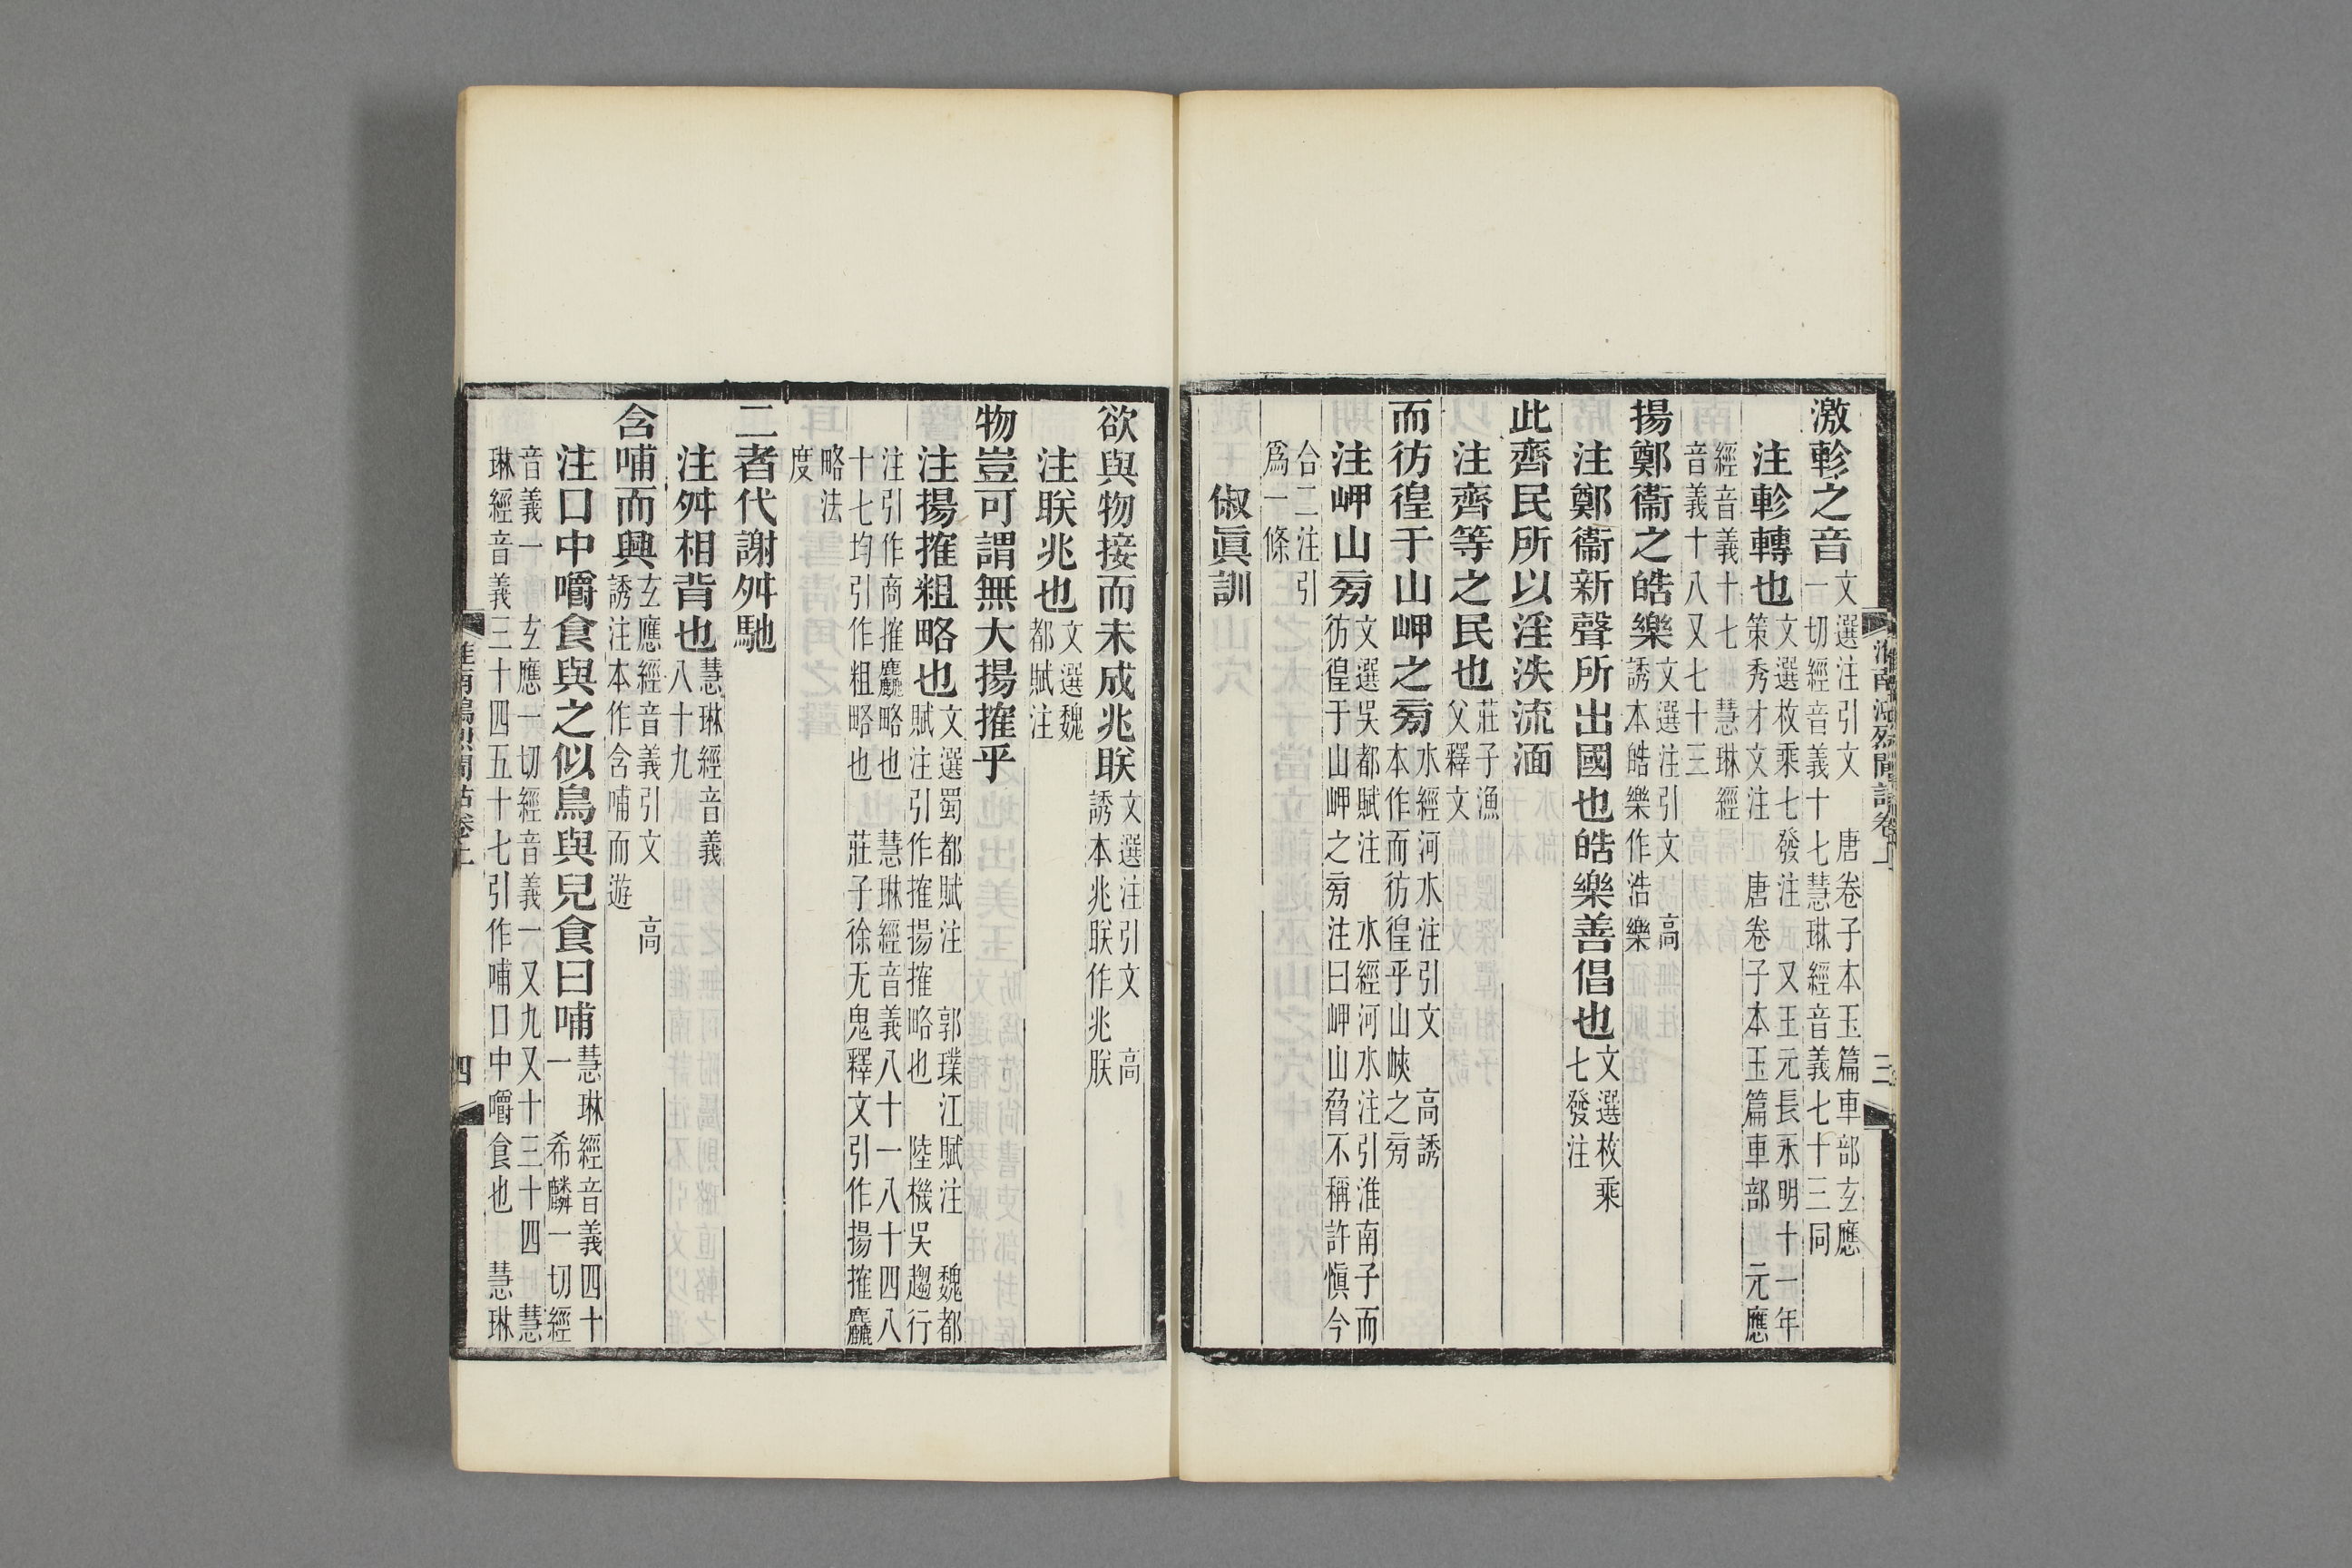 激軫之音文選注引文　唐卷子本玉篇車部玄應
一切經音義十七慧琳經音義七十三同
注軫轉也文選枚乘七發注　又王元長永明十一年
策秀才文注　唐卷子本玉篇車部　元應
經音義十七　慧琳經
音義十八又七十三
揚鄭衞之皓樂文選注引文　高
誘本皓樂作浩樂
注鄭衞新聲所出國也皓樂善倡也文選枚乘
七發注
此齊民所以淫泆流湎
注齊等之民也莊子漁
父釋文
而彷徨于山岬之旁水經河水注引文　高誘
本作而彷徨乎山峽之旁
注岬山旁文選吳都賦注　水經河水注引淮南子而
彷徨于山岬之旁注曰岬山脅不稱許愼今
合二注引
爲一條
俶眞訓
淮南鴻烈閒詁卷上
三
欲與物接而未成兆朕文選注引文　高
誘本兆朕作兆朕
注朕兆也文選魏
都賦注
物豈可謂無大揚搉乎
注揚搉粗略也文選蜀都賦注　郭璞江賦注　魏都
賦注引作搉揚搉略也　陸機吳趨行
注引作商搉麤略也　慧琳經音義八十一八十四八
十七均引作粗略也　莊子徐无鬼釋文引作揚搉麤
略法
度
二者代謝舛馳
注舛相背也慧琳經音義
八十九
含哺而興玄應經音義引文　高
誘注本作含哺而遊
注口中嚼食與之似鳥與兒食曰哺慧琳經音義四十
一　希麟一切經
音義一　玄應一切經音義一又九又十三十四　慧
琳經音義三十四五十七引作哺口中嚼食也　慧琳
淮南鴻烈閒詁卷上
四